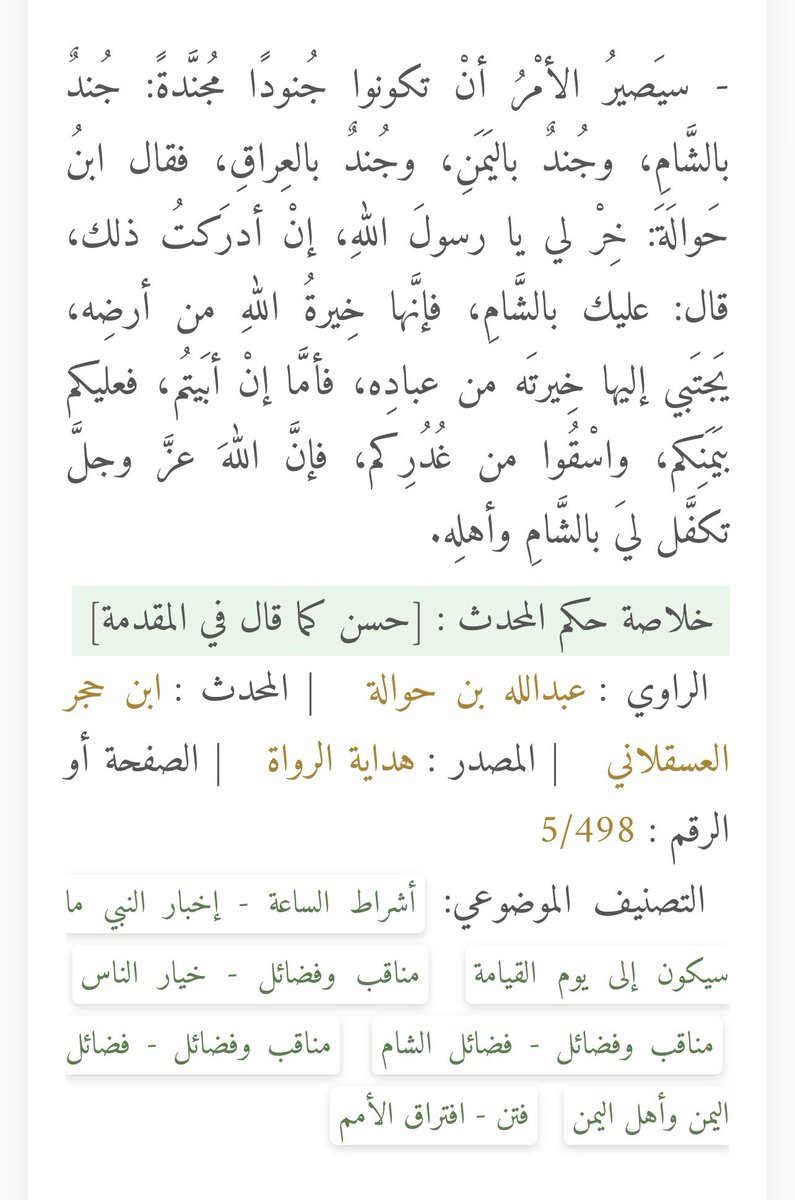 - سيَصيرُ الأمْرُ أنْ تكونوا جُنودًا مُجنَّدةً: جُندٌ
بالشَّامِ، وجُندٌ باليَمَنِ، وجُندٌ بالعِراقِ، فقال ابنُ
حَوالَةَ: خِرْ لي يا رسولَ اللهِ، إنْ أدرَكتُ ذلك،
قال: عليك بالشَّامِ، فإنَّها خِيرةُ اللهِ من أرضِه،
يَجتَبي إليها خِيرتَه من عبادِه، فأمَّا إنْ أبَيتُم، فعليكم
بيَمَنِكم، واسْقُوا من غُدُرِكم، فإنَّ اللهَ عزَّ وجلَّ
تكفَّل ليَ بالشَّامِ وأهلِه.
خلاصة حكم المحدث : [حسن كما قال في المقدمة]
الراوي : عبدالله بن حوالة | المحدث : ابن حجر
العسقلاني | المصدر : هداية الرواة | الصفحة أو
الرقم : 5/498
التصنيف الموضوعي: أشراط الساعة - إخبار النبي ما
سيكون إلى يوم القيامة مناقب وفضائل - خيار الناس
مناقب وفضائل - فضائل الشام مناقب وفضائل - فضائل
اليمن وأهل اليمن فتن - افتراق الأمم